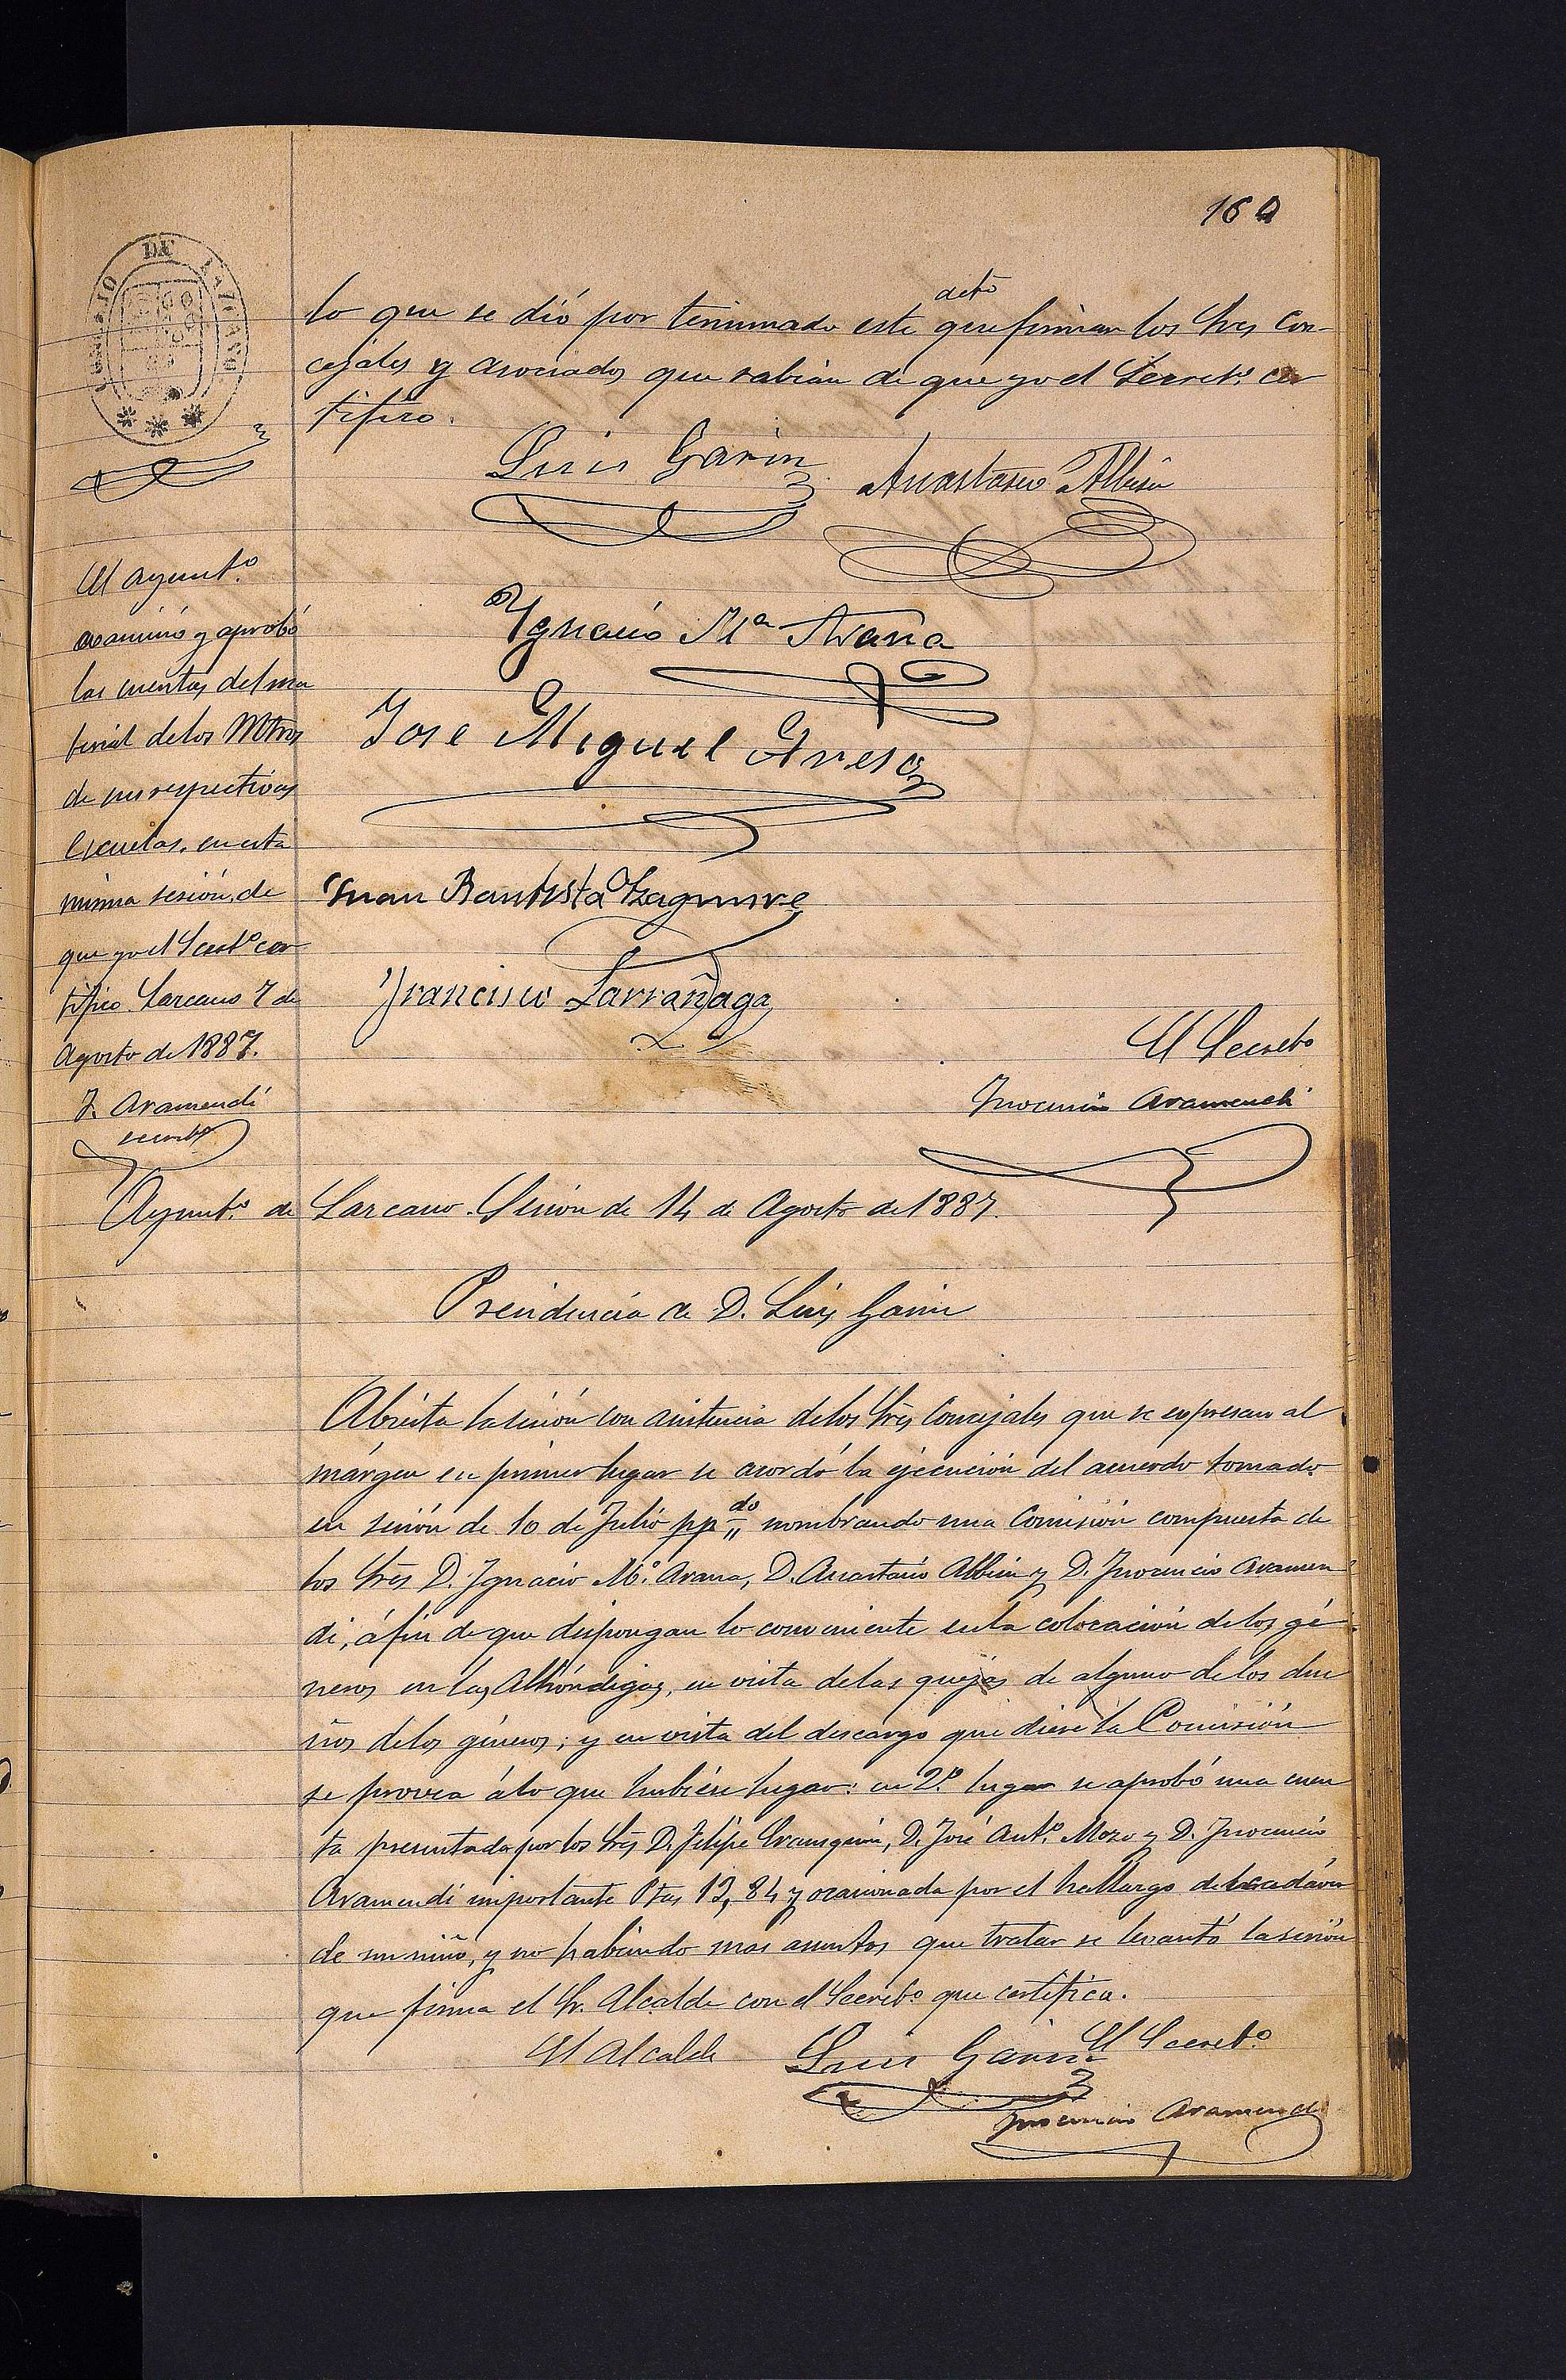 160
CONCEJO DE LAZCANO
lo que se dió por terminado este acto que firman los Sres Con-
cejales y asociados que sabian de que yo el Secret.º cer
tifico.
Luis Garin
Anastasio Albisu
Ygnacio Mª Arana
Jose Miguel
Juan Bautista Yzaguirre
Francisco Larrañaga
El Secretº
Inocencio Aramendi
El ayunt.º
examinó y aprobó
las cuentas del ma
terial de los Mtros
de sus respectivas
escuelas, en esta
misma sesión, de
que yo el Secretº cer
tifico. Lazcano 7 de
Agosto de 1887.
I. Aramendi
secretº
Ayunt.º de Lazcano. Sesión de 14 de Agosto de 1887.
Presidencia de D. Luis Garin
Abierta la sesión con asistencia de los Sres Concejales que se expresan al
márgen en primer lugar se acordó la ejecución del acuerdo tomado
en sesión de 10 de Julio ppdo nombrando una Comisión compuesta de
los Sres D. Ygnacio Mª Arana, D. Anastasio Albisu y D. Inocencio Aramen
di, á fin de que dispongan lo conveniente en la colocación de los gé
neros en las Alhóndigas, en vista de las quejas de alguno de los due
ños de los géneros; y en vista del descargo que diese la Comisión
se provea á lo que hubiere lugar: en 2º lugar se aprobó una cuen
ta presentada por los Sres D. Felipe, D. José Antº Mozo y D. Inocencio
Aramendi importante Ptas 12,84 y ocasionada por el hallazgo del cadáver
de un niño, y no habiendo mas asuntos que tratar se levantó la sesión
que firma el Sr. Alcalde con el Secretº que certifica.
El Alcalde
Luis Garin
El Secretº
Inocencio Aramendi